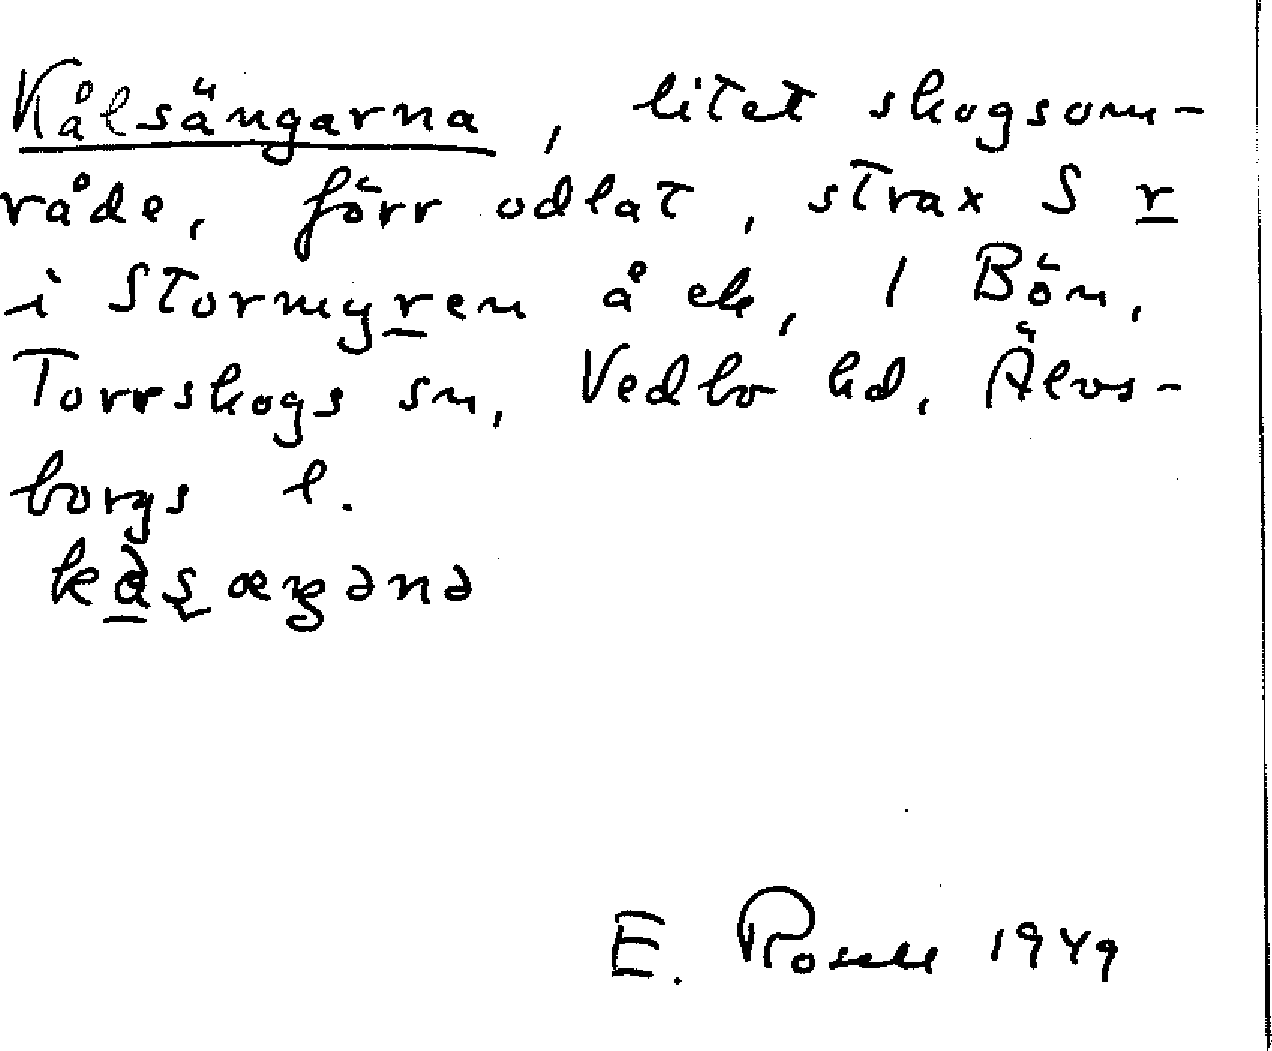 Kålsängarna, litet skogsom-
råde, förr odlat, strax S r
i Stormyren å ek, 1 Bön,
Torrskogs sn, Vedbo hd, Älvs-
borgs l.
E. Rosell 1949